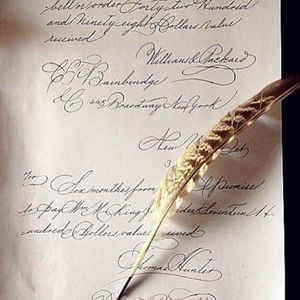 bell or order Forty two Hundred
and Ninety eight Dollars value
received
Williams & Packard
Bainbridge
& Co 445 Broadway New York
New
Six months from Promise
to pay Wm McKing or order Seventeen H
undred Dollars value received
Thomas Hunter